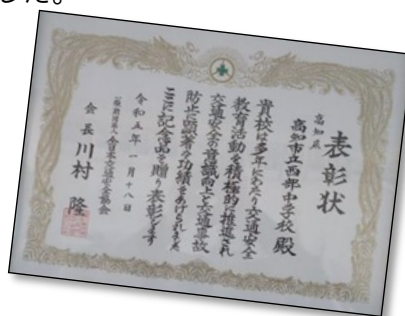 した。
表彰状
高知県
高知市立西部中学校 殿
貴校は多年にわたり交通安全
教育活動を積極的に推進され
交通安全の意識向上と交通事故
防止に顕著な功績をあげられました
ここに記念品を贈り表彰します
令和五年一月十八日
一般財団法人 全日本交通安全協会
会長 川村 隆